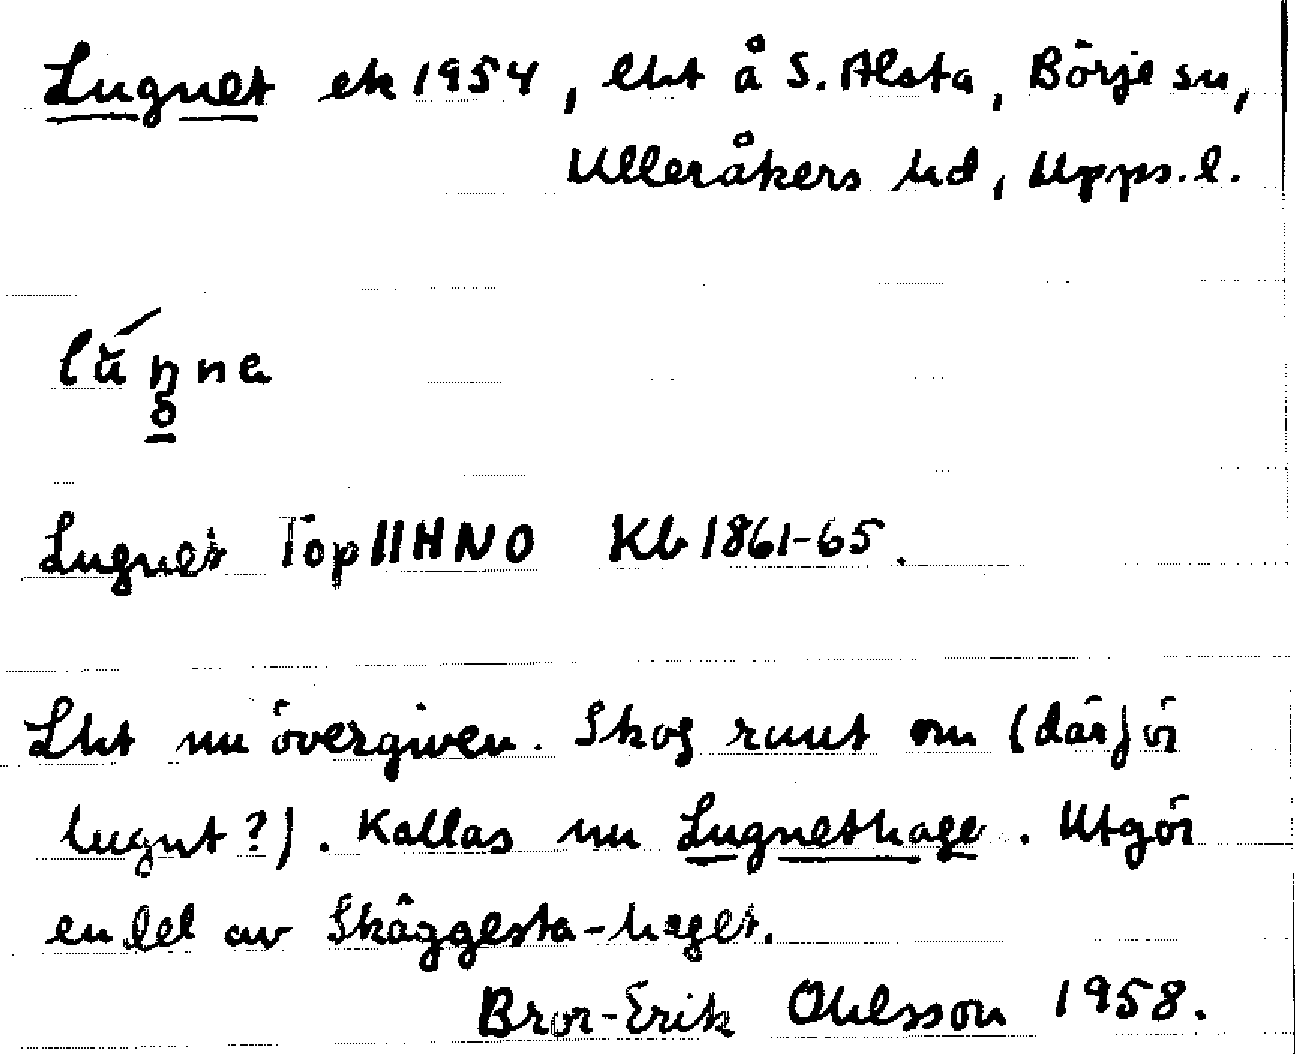 Lugnet ek 1954, lht å S. Alsta, Börje sn,
Ulleråkers hd, Upps. l.
Lugnet Top II H N O Kb 1861-65.
Lht nu övergiven. Skog runt om (därför
lugnt?). Kallas nu Lugnethage. Utgör
en del av Skäggesta-haget.
Bror-Erik Ohlsson 1958.